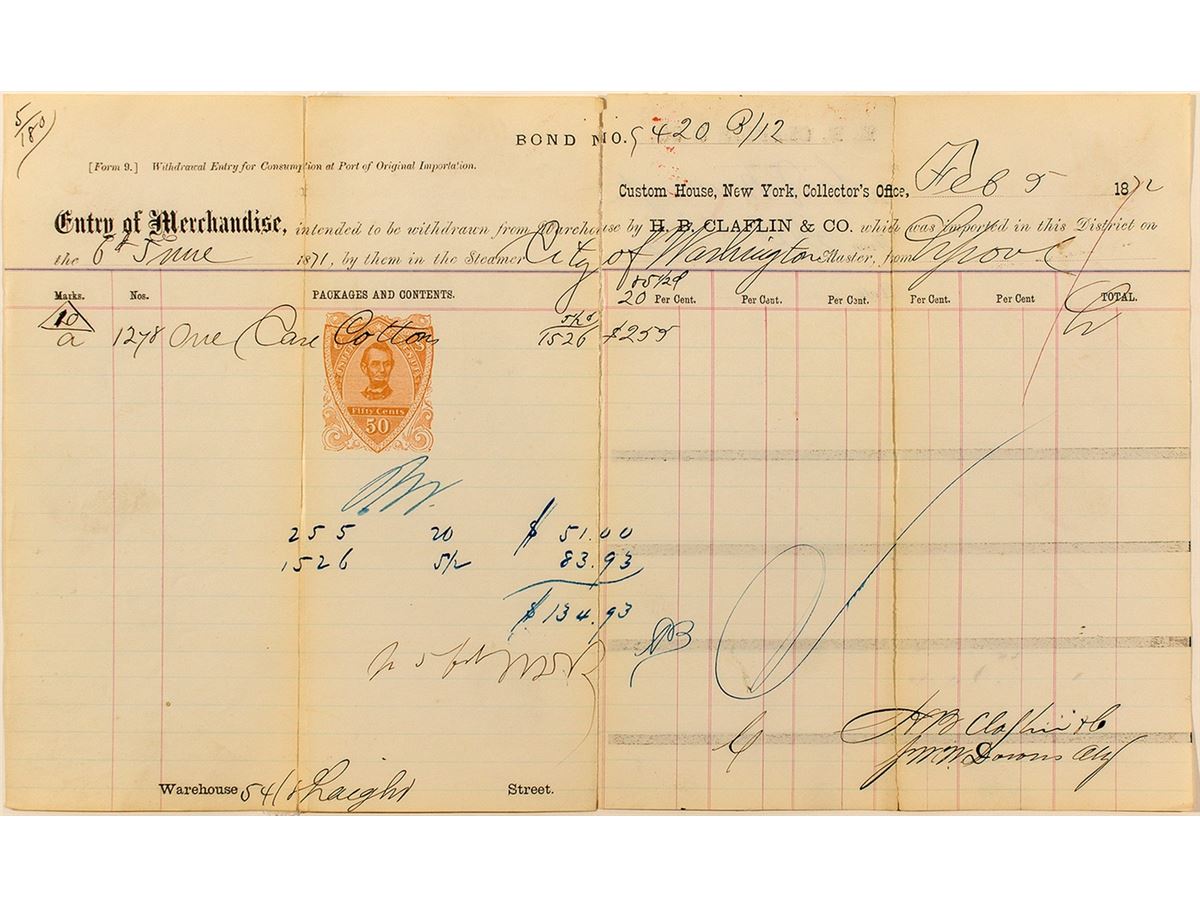 5/180
BOND NO. 5420 B/12
[Form 9.] Withdrawal Entry for Consumption at Port of Original Importation.
Custom House, New York, Collector's Office, Feb 5 1872
Entry of Merchandise, intended to be withdrawn from Warehouse by H. B. CLAFLIN & CO. which was imported in this District on
the 6th June 1871, by them in the Steamer City of Washington Master, from L'pool
Marks. Nos. PACKAGES AND CONTENTS. 20 Per Cent. Per Cent. Per Cent. Per Cent. Per Cent TOTAL.
10
a 1278 One Case Cottons 1526 $255
Fifty Cents
50
255 20 $ 51.00
1526 5½ 83.93
$ 134.93
H B Claflin & Co
Warehouse 54 Laight Street.